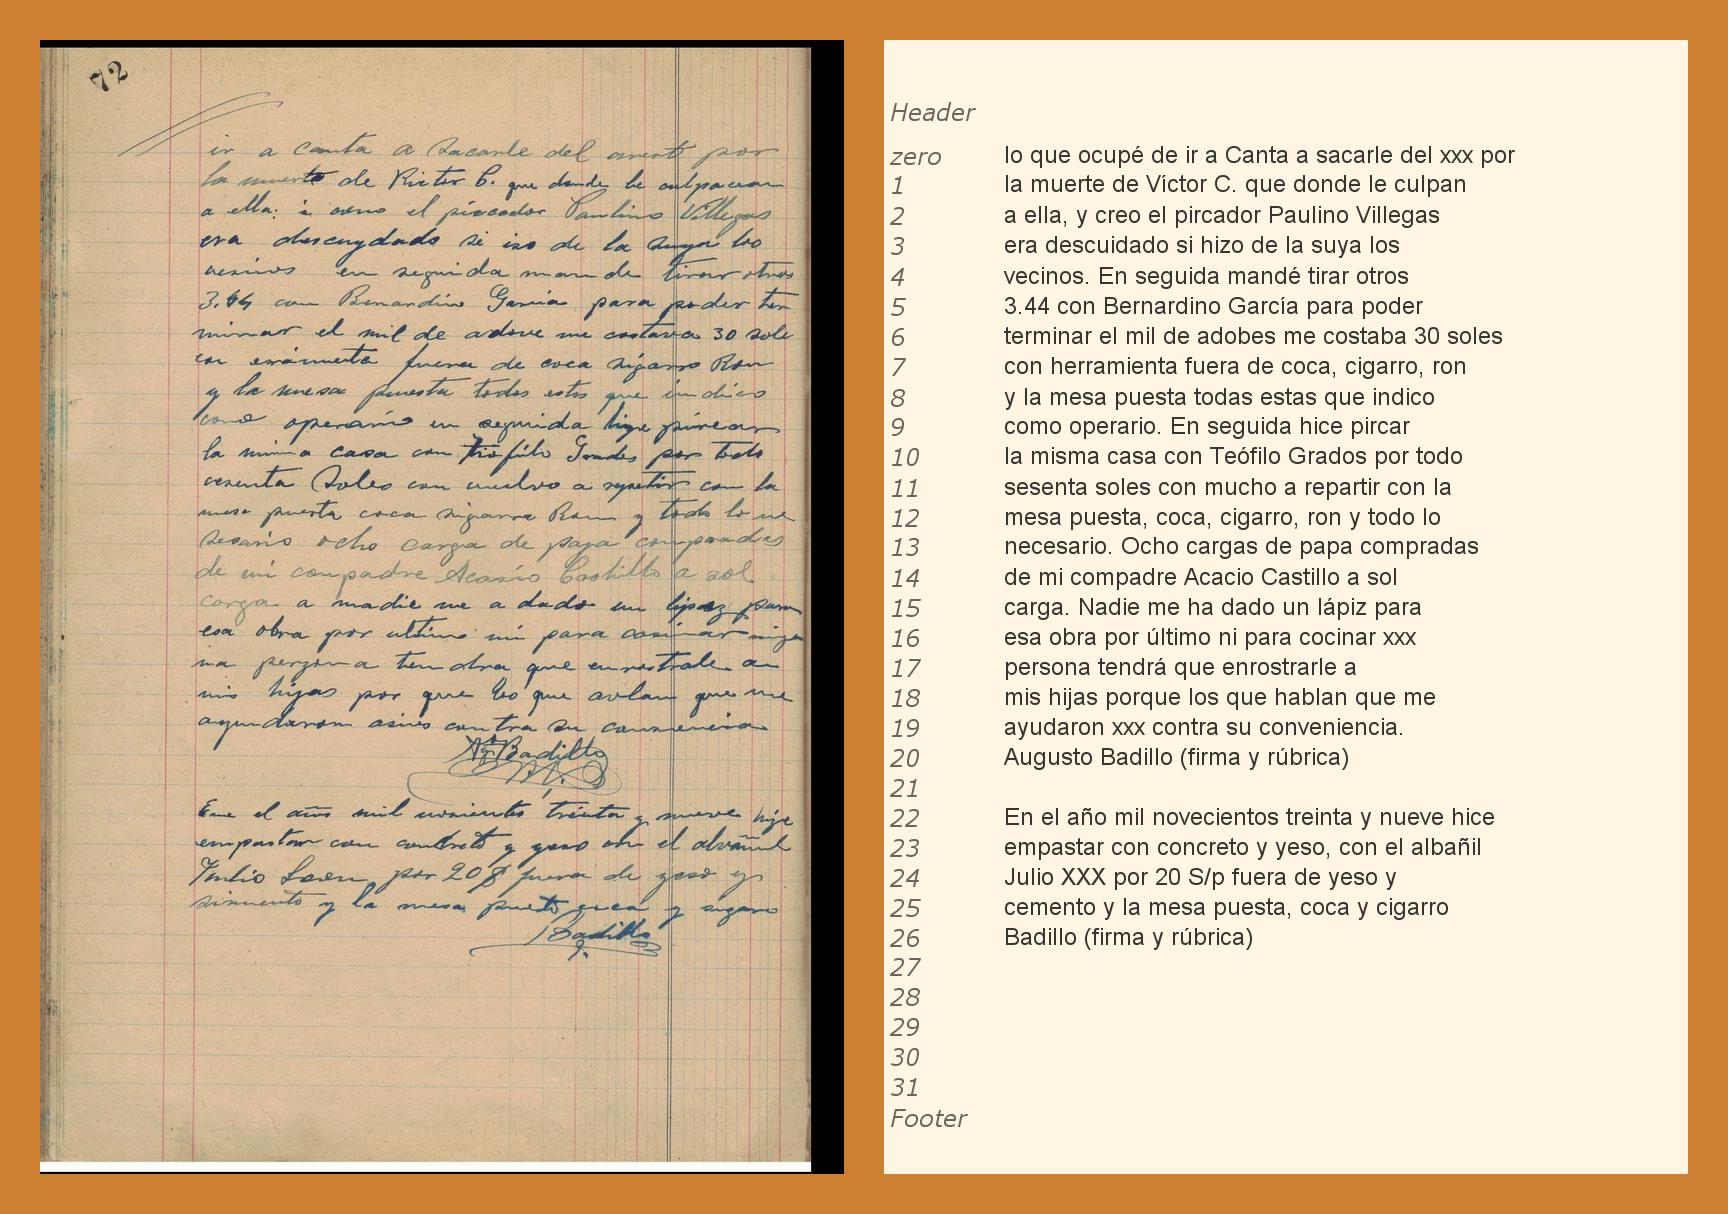 72
ir a canta a sacarle del por
la muerte de Victor C. que donde le culpavan
a ella: i como el pircador Paulino Villegas
era descuydado si iso de la suya los
vesinos en seguida mande tirar otros
3.44 con Bernardino Garcia para poder ter
minar el mil de adove me costava 30 sole
con eramienta fuera de coca sigarro Ron
y la mesa puesta todos estos que indico
como operario en seguida hize pircar
la misma casa con Tiofilo Grados por todo
sesenta Soles con a con la
mesa puesta coca sigarro Ron y todo lo ne
sesario ocho carga de papa comprados
de mi compadre Acasio Castillo a sol
carga a nadie me a dado un lipaz para
esa obra por ultimo ni para cosinar
na perzona tendra que enrostrale a
mis hijas por que los que avlan que me
ayundaron contra su
Badillo
Ene el año mil novesientos treinta y nueve hize
empastar con concreto y yeso con el alvañil
Julio por 20 fuera de yeso y
simiento y la mesa puesta coca y sigarro
Badillo
Header
zero lo que ocupé de ir a Canta a sacarle del xxx por
1 la muerte de Víctor C. que donde le culpan
2 a ella, y creo el pircador Paulino Villegas
3 era descuidado si hizo de la suya los
4 vecinos. En seguida mandé tirar otros
5 3.44 con Bernardino García para poder
6 terminar el mil de adobes me costaba 30 soles
7 con herramienta fuera de coca, cigarro, ron
8 y la mesa puesta todas estas que indico
9 como operario. En seguida hice pircar
10 la misma casa con Teófilo Grados por todo
11 sesenta soles con mucho a repartir con la
12 mesa puesta, coca, cigarro, ron y todo lo
13 necesario. Ocho cargas de papa compradas
14 de mi compadre Acacio Castillo a sol
15 carga. Nadie me ha dado un lápiz para
16 esa obra por último ni para cocinar xxx
17 persona tendrá que enrostrarle a
18 mis hijas porque los que hablan que me
19 ayudaron xxx contra su conveniencia.
20 Augusto Badillo (firma y rúbrica)
21
22 En el año mil novecientos treinta y nueve hice
23 empastar con concreto y yeso, con el albañil
24 Julio XXX por 20 S/p fuera de yeso y
25 cemento y la mesa puesta, coca y cigarro
26 Badillo (firma y rúbrica)
27
28
29
30
31
Footer